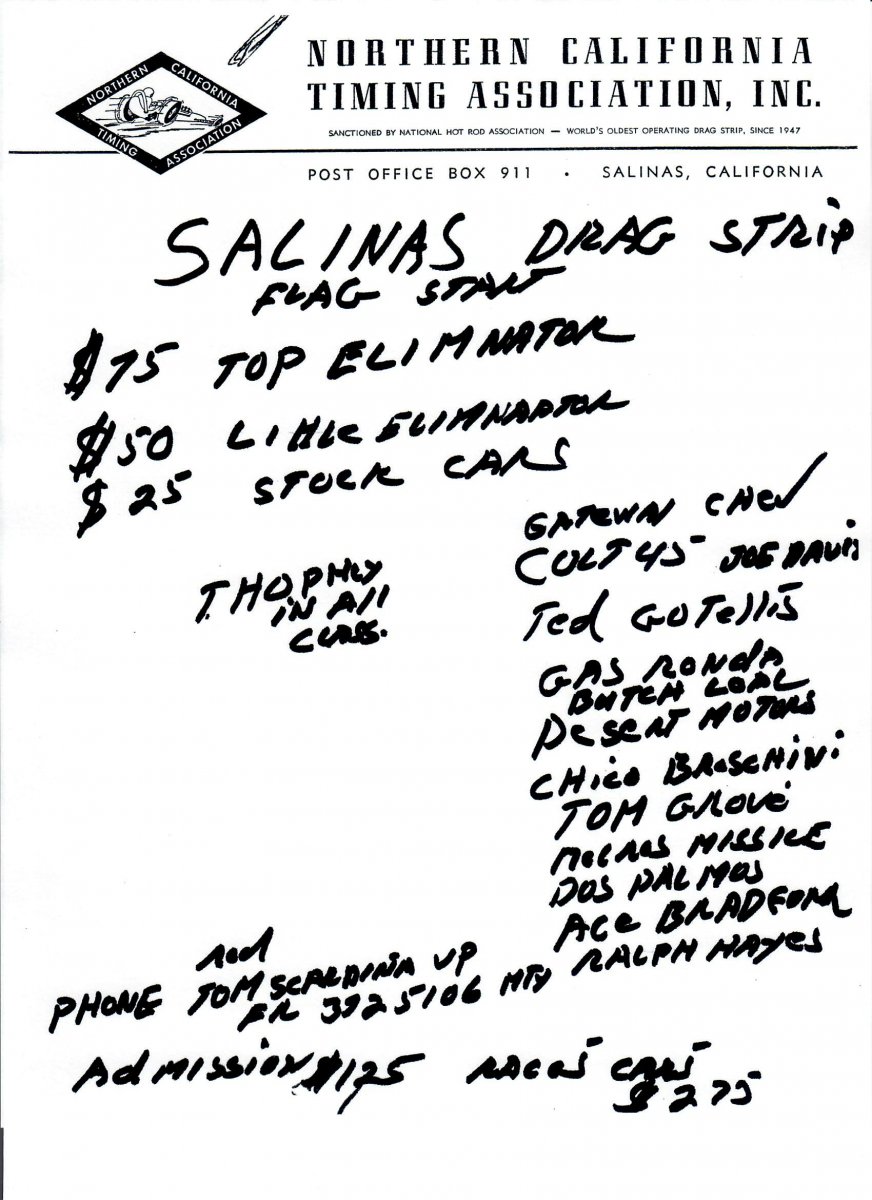 NORTHERN CALIFORNIA
TIMING ASSOCIATION, INC.
NORTHERN CALIFORNIA
TIMING ASSOCIATION
SANCTIONED BY NATIONAL HOT ROD ASSOCIATION — WORLD'S OLDEST OPERATING DRAG STRIP, SINCE 1947
POST OFFICE BOX 911 • SALINAS, CALIFORNIA
SALINAS DRAG STRIP
FLAG START
$75 TOP ELIMNATOR
$50 LittLe ELIMNAPTOR
$25 STOCK CARS
GATEWAY CHEV
COLT 45 JOE DAVIS
T.HOPHLY
IN All
CLASS.
Ted GOTellis
GAS RONDA
BUTCH LOAL
DeSeRT MOTORS
CHico BReSCHiNi
TOM GROVE
MELROS MISSILE
DOS PALMOS
ACe BRADFORD
RALPH HAYES
Red
PHONE TOM SCARDINA UP
FR 3725106 MTY
AdMISSION $1 25 RACES CARS
$2 75